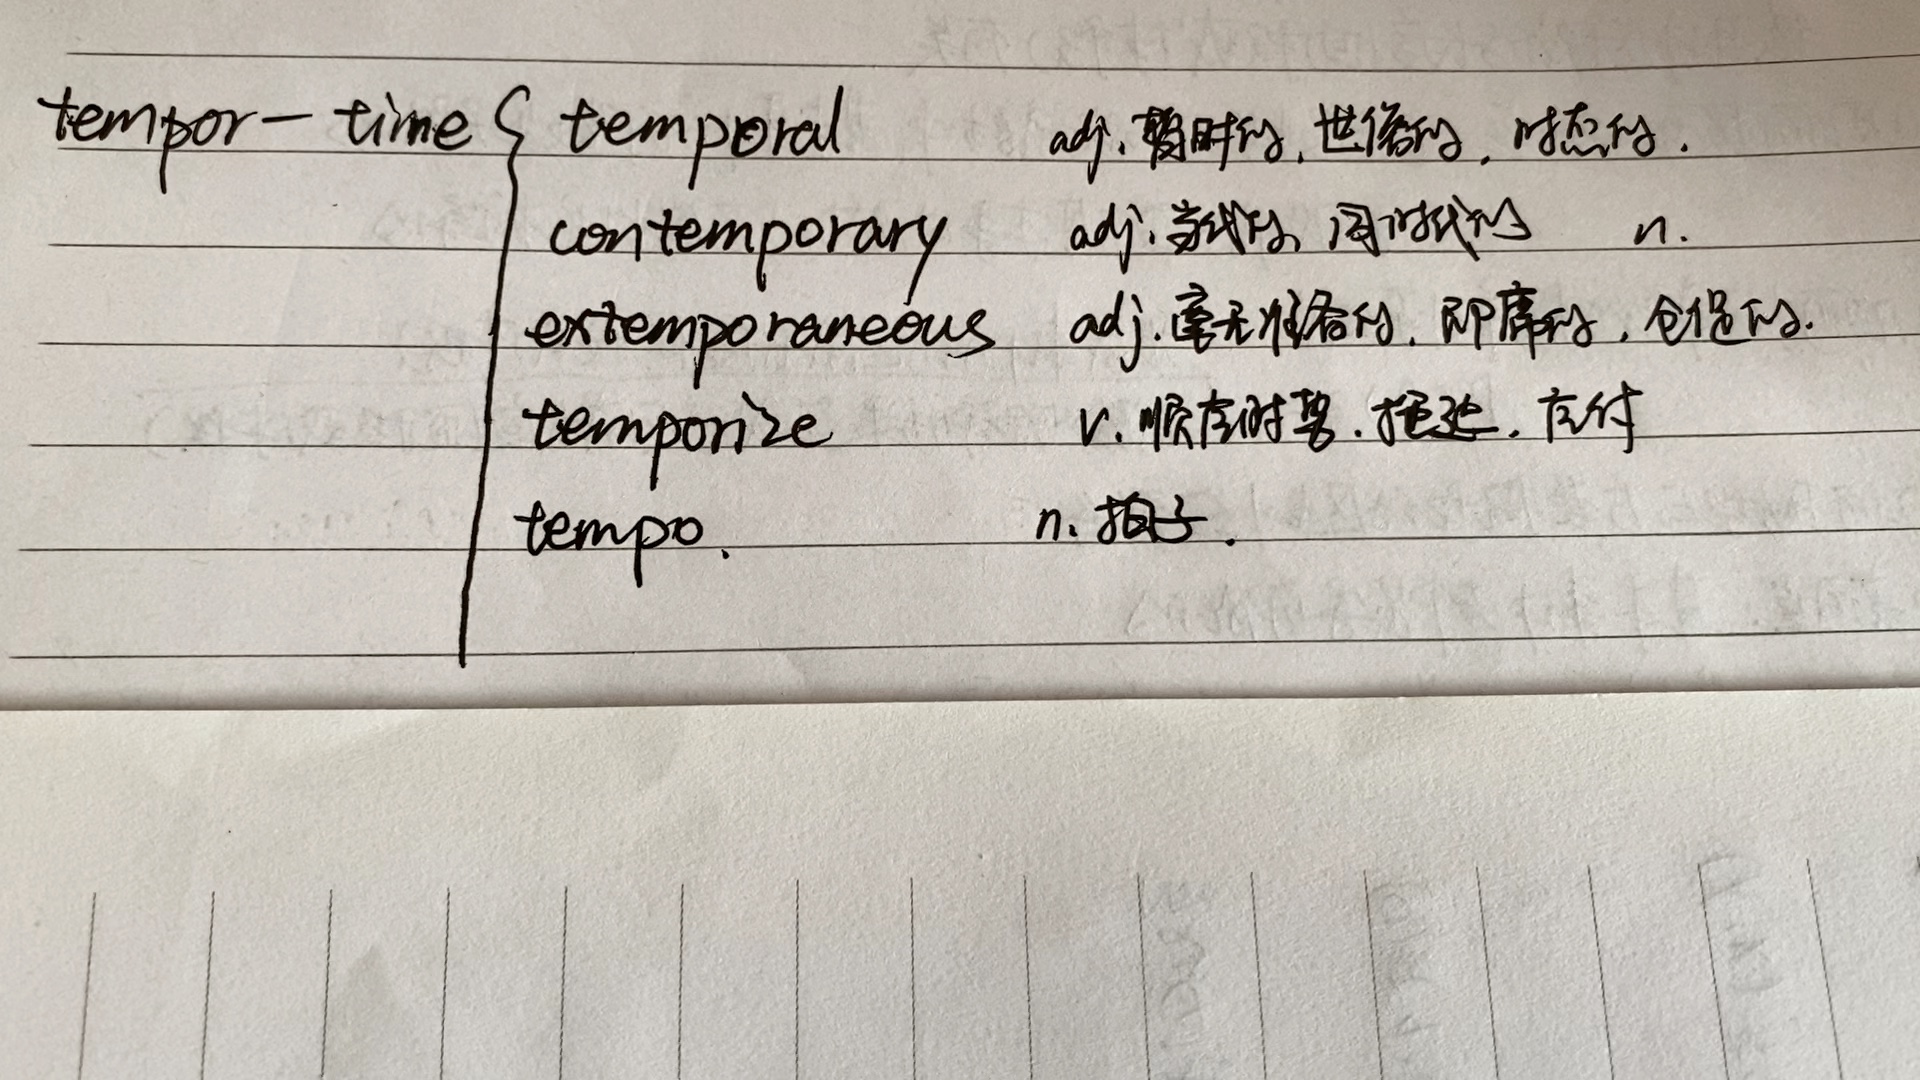 tempor- time { temporal adj. 暂时的, 世俗的, 时态的.
contemporary adj. 当代的, 同时代的 n.
extemporaneous adj. 毫无准备的, 即席的, 仓促的.
temporize v. 顺应时势. 拖延. 应付
tempo. n. 拍子.